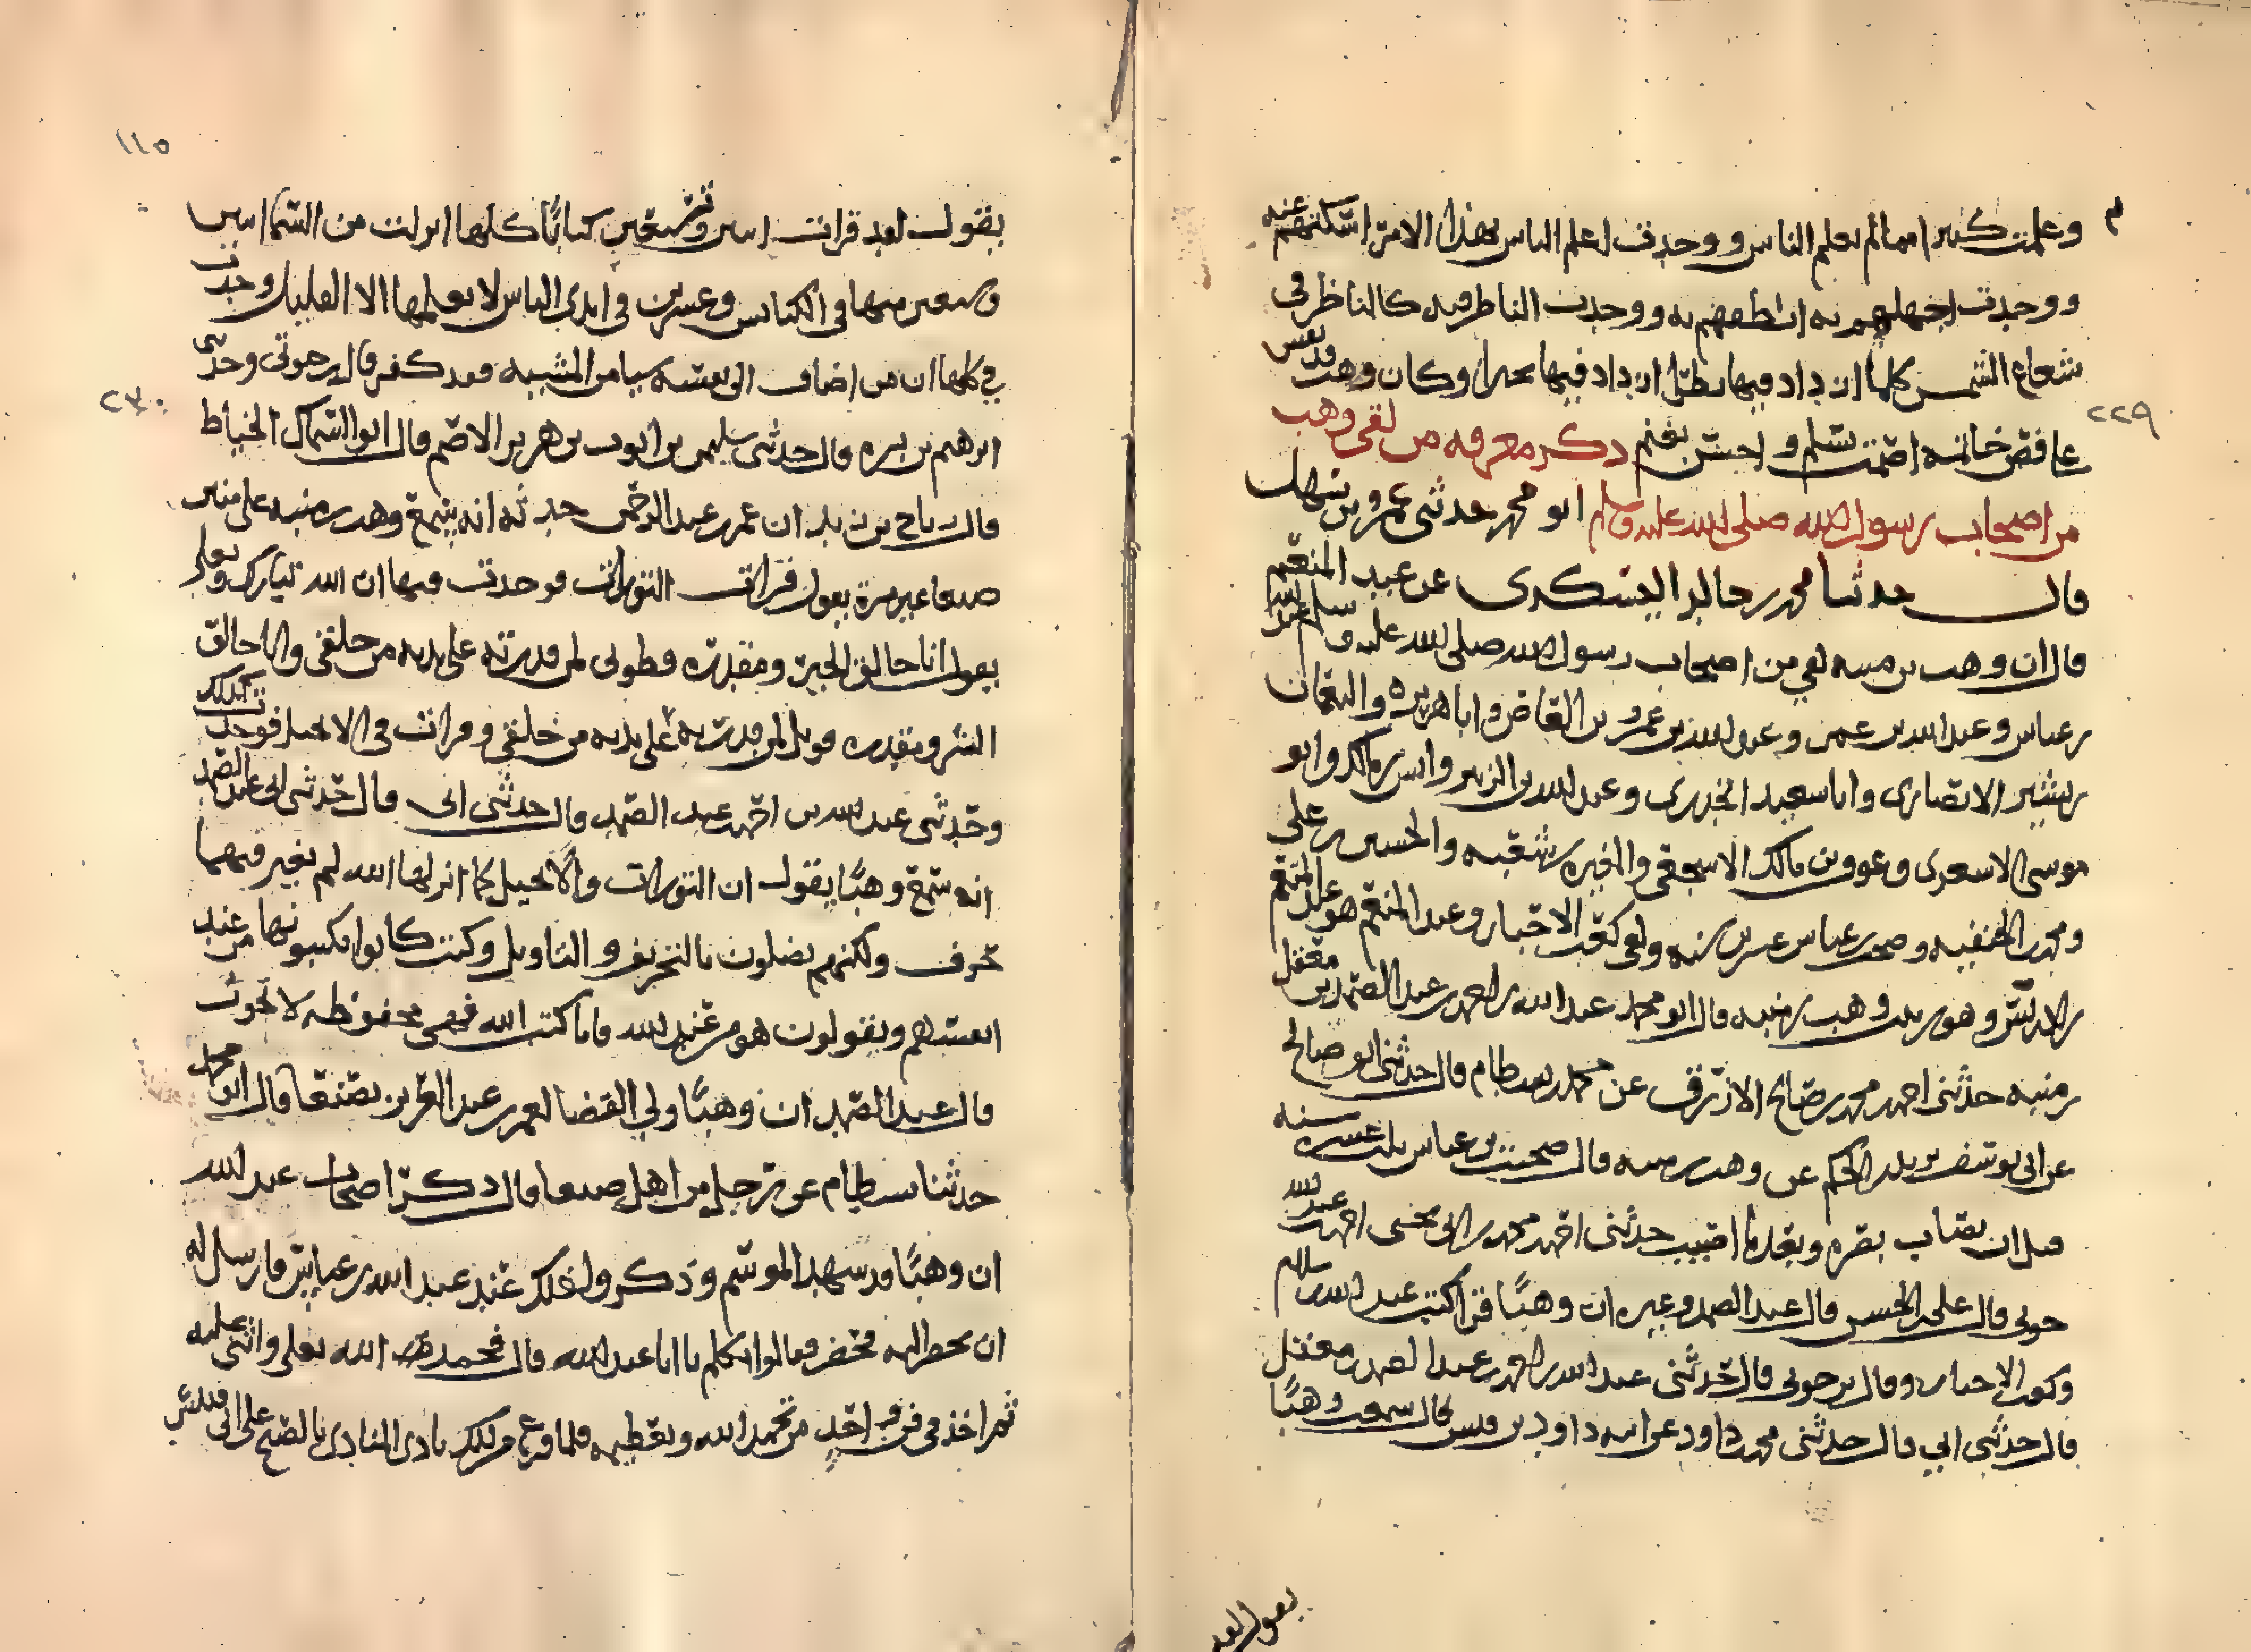 وعلمت كثيرا مما لم يعلم الناس ووجدت اعلم الناس بهذا الامر اسكتهم عنه
ووجدت اجهلهم به انطقهم به ووجدت الناظر فيه كالناظر في
شعاع الشمس كلما ازداد فيها نظرا ازداد فيها تحيرا وكان وهب
٢٢٩
على فص خاتمه اصمت تسلم واحسن تغنم ذكر معرفه من لقي وهب
من اصحاب رسول الله صلى الله عليه وسلم ابو محمد حدثني عمرو بن سهل
قال حدثنا محمد بن خالد اليشكري عن عبد المنعم
قال ان وهب بن منبه لقي من اصحاب رسول الله صلى الله عليه وسلم عبد الله
بن عباس وعبد الله بن عمر وعبد الله بن عمرو بن العاص وابا هريره والنعمان
بن بشير الانصاري وابا سعيد الخدري وعبد الله بن الزبير وانس بن مالك وابو
موسى الاشعري وعوف بن مالك الاشجعي والمغيره بن شعبه والحسين بن علي
ومحمد بن الحنفيه وصحب بن عباس عشرين سنه ولقي كعب الاحبار وعبد المنعم هو عبد المنعم
بن ادريس وهو بن بنت وهب بن منبه قال ابو محمد عبد الله بن احمد بن عبد الصمد بن معقل
بن منبه حدثني احمد بن محمد بن صالح الازرق عن محمد بن بسطام قال حدثني ابو صالح
عن ابي يوسف بن الحكم عن وهب بن منبه قال صحبت بن عباس ثلث عشره سنه
قبل ان يصاب بصره وبعدما اصيب حدثني احمد بن محمد بن ابي يحيى احمد بن عبد الله
حوثي قال علي بن الحسن قال عبد الصمد وغيره ان وهبا قرا كتب عبد الله بن سلام
وكعب الاحبار وقال بن حوثي قال حدثني عبد الله بن احمد بن عبد الصمد بن معقل
قال حدثني ابي قال حدثني محمد بن داود عن ابيه داود بن قيس قال سمعت وهبا
يقول لقد
١١٥
يقول لقد قرات اثنين وتسعين كتابا كلها انزلت من السما اثنين
وسبعين منها في الكنائس وعشرين في ايدي الناس لا يعلمها الا القليل وجدت
في كلها ان من اضاف الى نفسه شيا من المشيه فقد كفر قال بن حوثي وحدثني
٢٣٠
ابرهيم بن قال حدثني سليمن بن ايوب بن الاصم قال ابو السمال الخياط
قال رباح بن زيد ان عمر بن عبد الرحمن حدثه انه سمع وهب بن منبه على منبر
صنعا غير مرة يقول قرات التورات فوجدت فيها ان الله تبارك وتعلى
يقول انا خالق الخير ومقدره فطوبى لمن قدرته على يديه من خلقي وانا خالق
الشر ومقدره فويل لمن قدرته على يديه من خلقي وقرات في الانجيل فوجدت كذلك
وحدثني عبد الله بن احمد بن عبد الصمد قال حدثني ابي قال حدثني ابي عبد الصمد
انه سمع وهبا يقول ان التورات والانجيل كما انزلها الله لم يغير فيهما
حرف ولكنهم يضلون بالتحريف والتاويل وكتب كانوا يكتبونها من عند
انفسهم ويقولون هو من عند الله فاما كتب الله فهي محفوظه لا تحول
قال عبد الصمد ان وهبا ولي القضا لعمر بن عبد العزيز بصنعا قال ابو محمد
حدثنا بسطام عن رجل من اهل صنعا قال ذكر اصحاب عبد الله
ان وهبا قد شهد الموسم وذكروا ذلك عند عبد الله بن عباس فارسل له
ان يحضر اليه فحضر فقالوا تكلم يا ابا عبد الله قال فحمد الله تعلى واثنى عليه
ثم اخذ في فن واحد من تحميد الله وتعظيمه فلما فرغ من ذلك نادى المنادي بالصبح على ابي قبيس